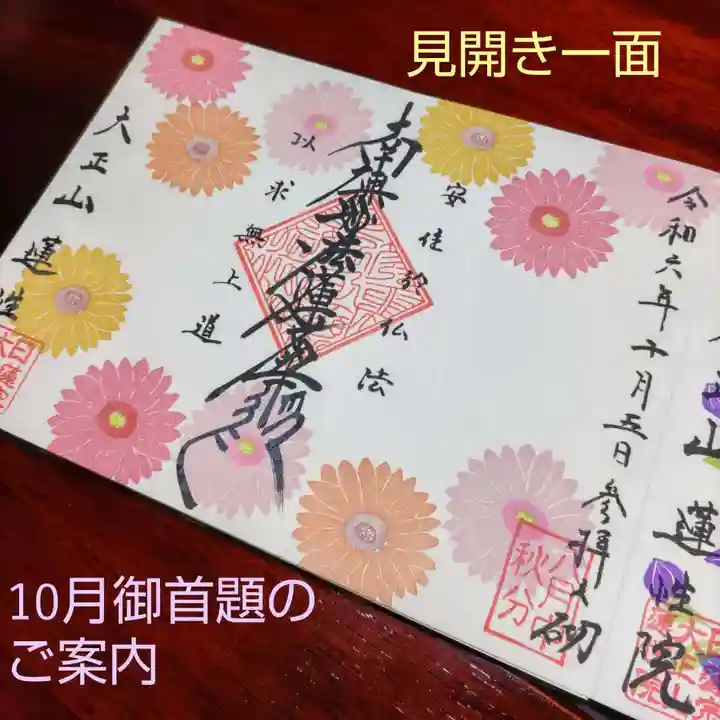 見開き一面
令和六年十月五日参拝之砌
安住於仏法
南無妙法蓮華経
以求無上道
大正山 蓮性
八月中
秋分
山蓮性院
10月御首題の
ご案内